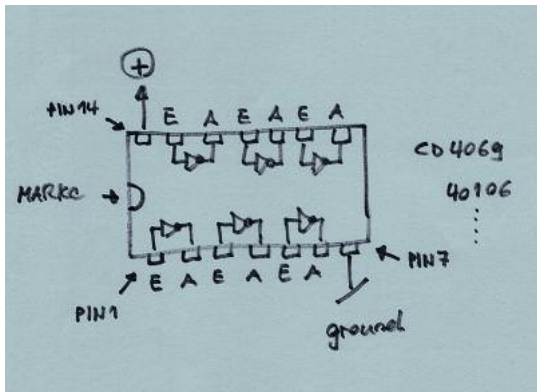 +
PIN 14
E A E A E A
CD 4069
40106
MARKE
E A E A E A
PIN 7
PIN 1
ground